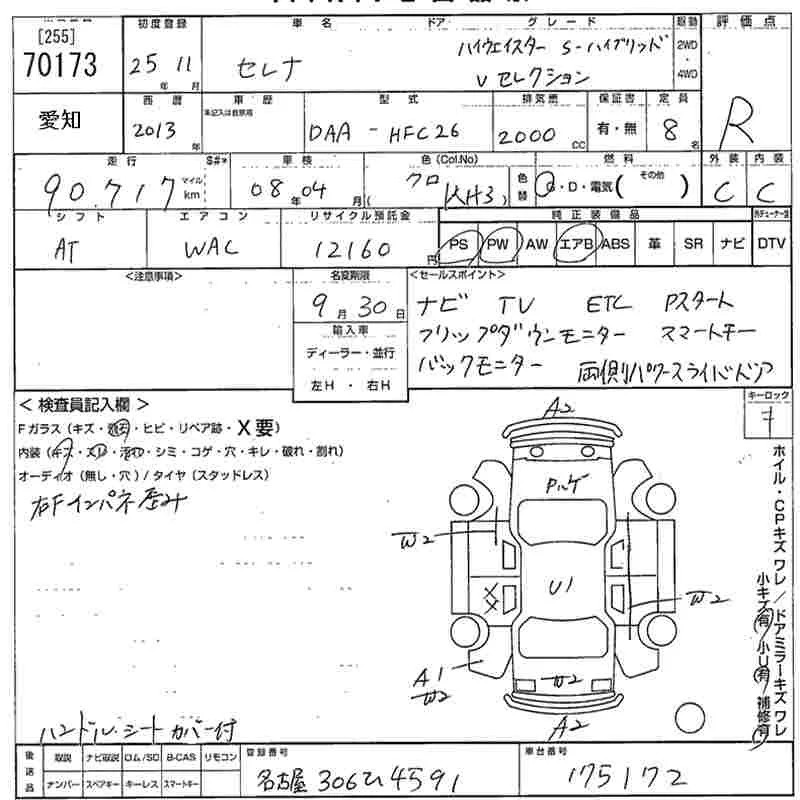 [255]
70173
初度登録
25 11
年 月
車名
セレナ
ドア
グレード
ハイウェイスター S-ハイブリッド
Vセレクション
駆動
2WD
・
4WD
評価点
R
愛知
西暦
2013
年
車歴
型式
DAA - HFC26
排気量
2000
CC
保証書
有・無
定員
8
名
走行
90,717
マイル
km
S#*
車検
08年04月
色(Col.No)
クロ
(KH3)
色替
燃料
G・D・電気( その他 )
外装
C
内装
C
シフト
AT
エアコン
WAC
リサイクル預託金
12160
円
純正装備品
PS PW AW エアB ABS 革 SR ナビ DTV
<注意事項>
名変期限
9月30日
輸入車
ディーラー・並行
左H ・ 右H
<セールスポイント>
ナビ TV ETC Pスタート
フリップダウンモニター スマートキー
バックモニター 両側パワースライドドア
キーロック
キ
<検査員記入欄>
Fガラス(キズ・飛石・ヒビ・リペア跡・X要)
内装(キズ・スレ・汚れ・シミ・コゲ・穴・キレ・破れ・割れ)
オーディオ(無し・穴)/タイヤ(スタッドレス)
右Fインパネ歪み
A2
W2
U1
XX
W2
A1
W2
W2
A2
ホイル・CPキズ ワレ/ドアミラーキズ ワレ
小キズ有 小U有 補修有
ハンドル・シートカバー付
後送品
取説 ナビ取説 ロム/SD B-CAS リモコン
ナンバー スペアキー キーレス スマートキー
登録番号
名古屋 306ひ4591
車台番号
175172